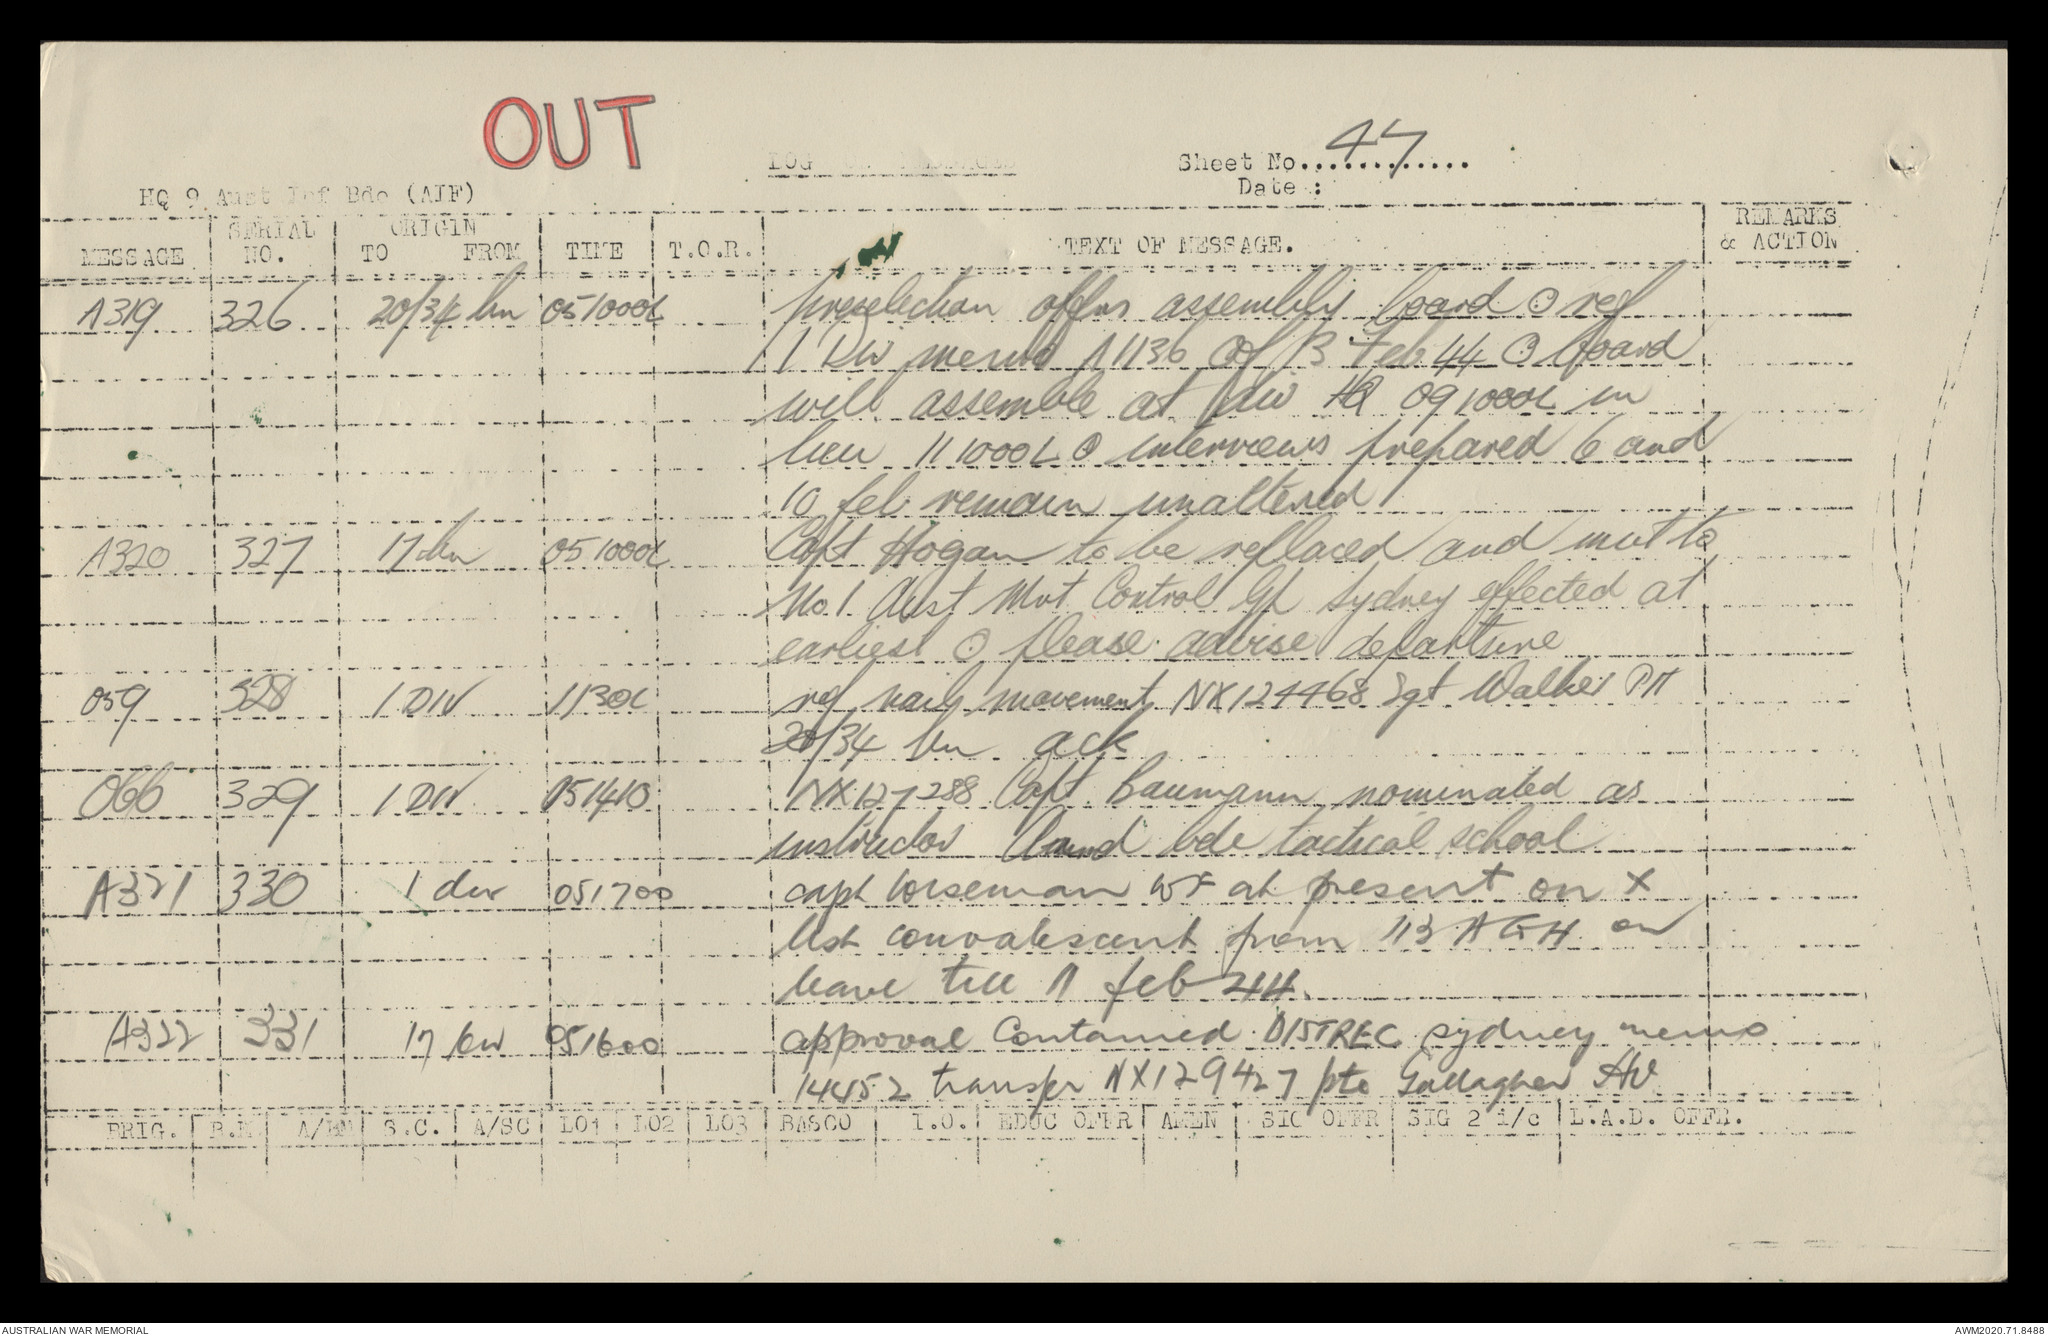 OUT
LOG OF MESSAGES
Sheet No. 47
Date :
HQ 9 Aust Inf Bde (AIF)
MESSAGE SERIAL NO. ORIGIN TO FROM TIME T.O.R. TEXT OF MESSAGE. REMARKS & ACTION
A319 326 20/34 bn 051000L preselection offrs assembly board ⊙ ref
1 Div memo A1136 of 3 Feb 44 ⊙ board
will assemble at div HQ 091000L in
lieu 111000L ⊙ interviews prepared 6 and
10 feb remain unaltered
A320 327 17 bn 051000L Capt Hogan to be replaced and mvt to
No.1 Aust Mvt Control Gp Sydney effected at
earliest ⊙ please advise departure
059 328 1 DIV 1130L ref movement NX124468 Sgt Walker
20/34 bn ack
O66 329 1 DIV 051410 NX127288 Capt Baumann nominated as
instructor bde tactical school
A321 330 1 div 051700 capt Wiseman WF at present on X
list convalescent from 113 AGH on
leave till 11 feb 44.
A322 331 17 bn 051600 approval contained DISTREC sydney memo
14452 transfer NX129427 pte Gallagher AV
BRIG. B.M. A/BM S.C. A/SC LO1 LO2 LO3 BASCO I.O. EDUC OFFR AMEN SIG OFFR SIG 2 i/c L.A.D. OFFR.
AUSTRALIAN WAR MEMORIAL
AWM2020.71.8488